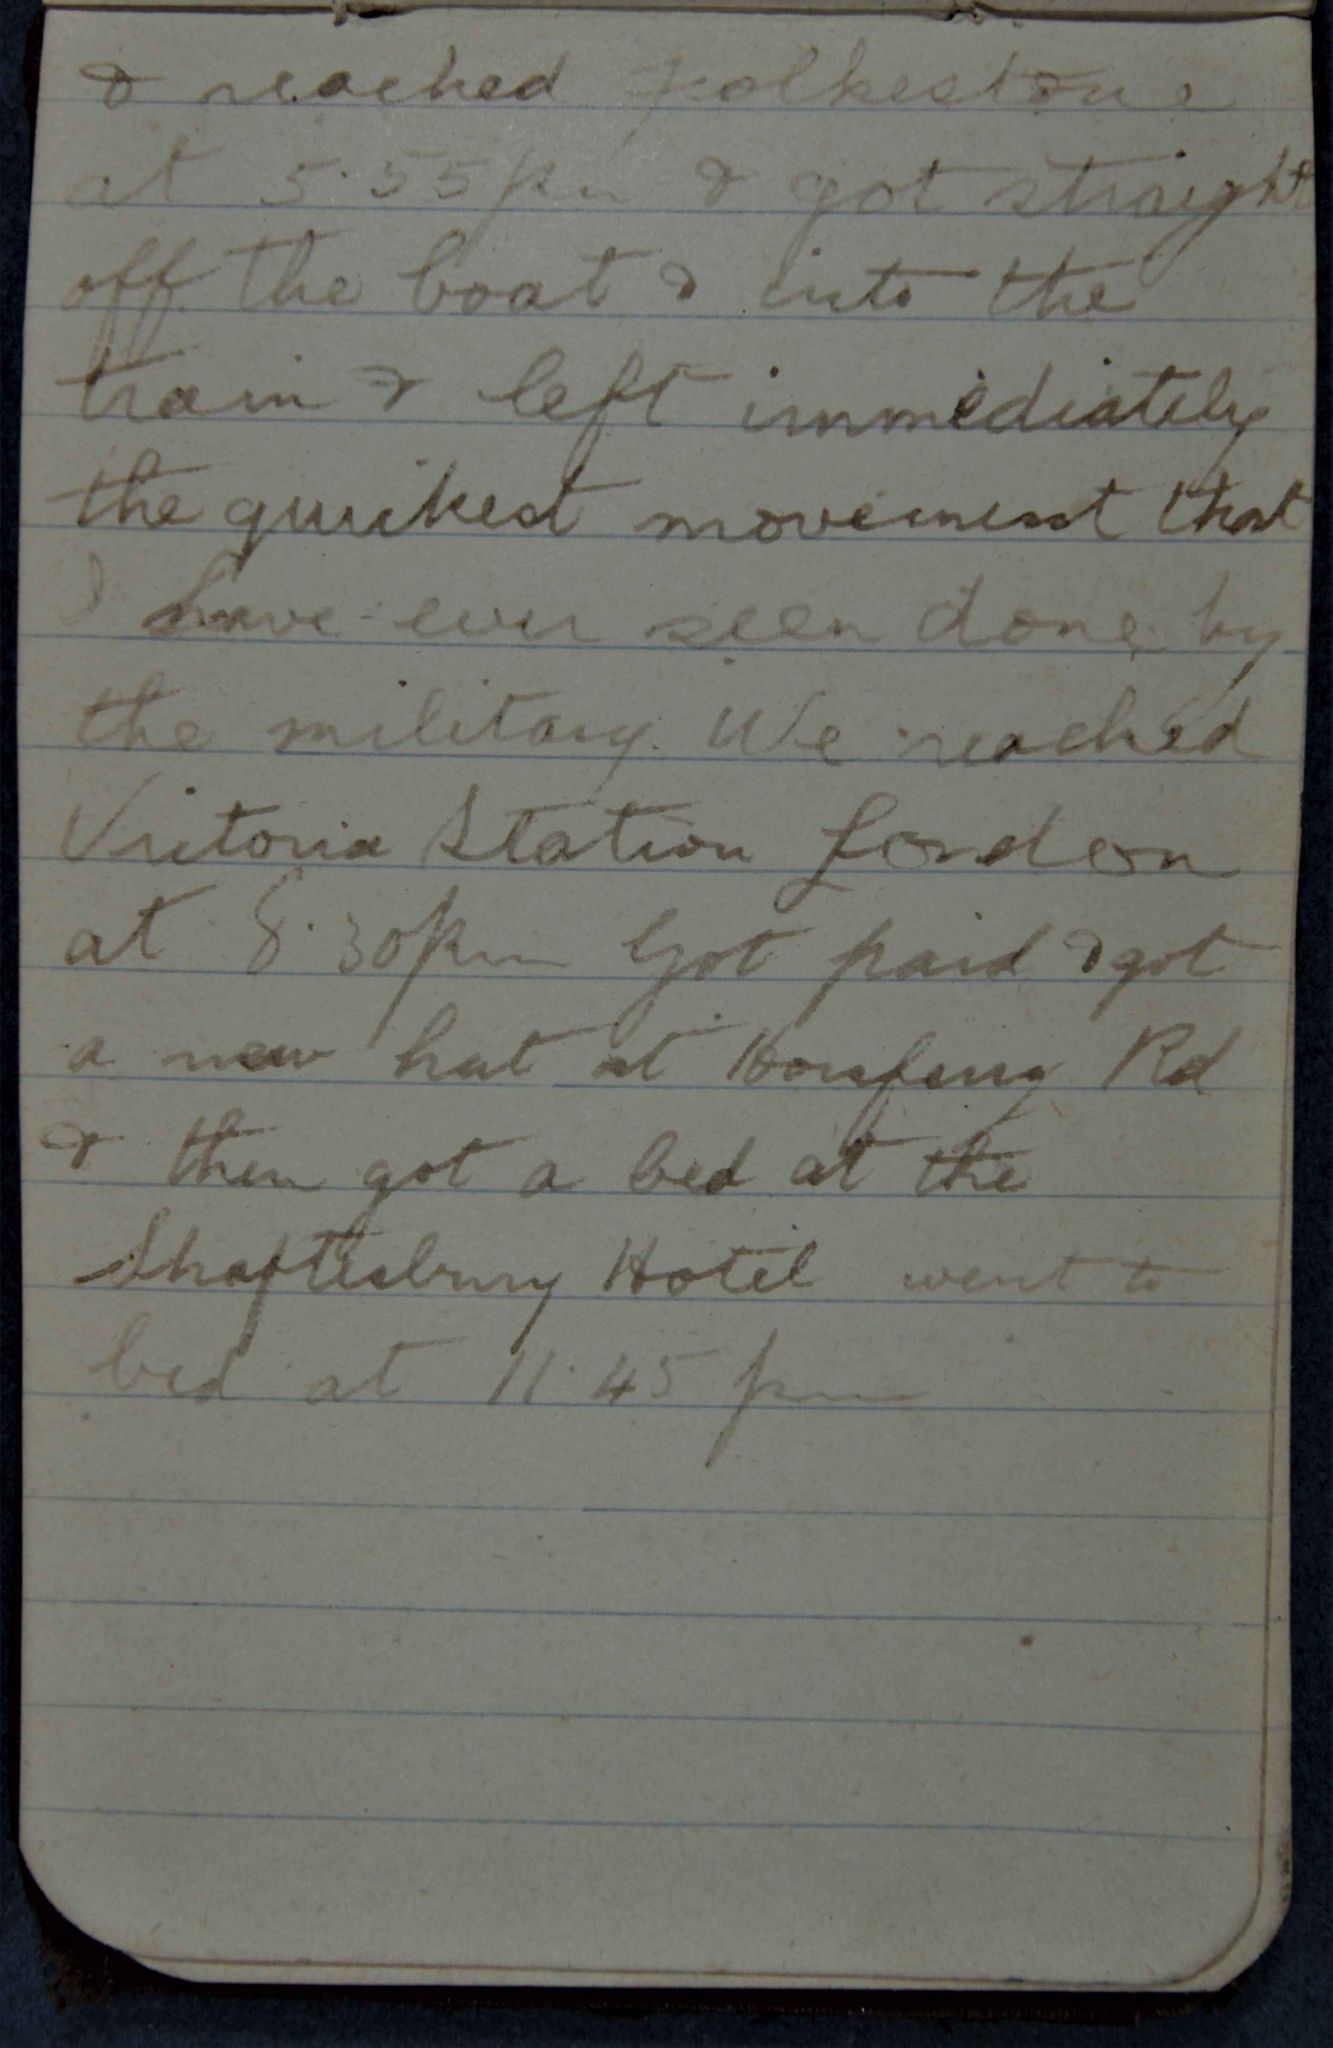 & reached Folkestone
at 5.55 pm & got straight
off the boat & into the
train & left immediately
the quickest movement that
I have ever seen done by
the military. We reached
Victoria Station London
at 8.30 pm Got paid & got
a new hat at Rd
& then got a bed at the
Shaftesbury Hotel went to
bed at 11.45 pm